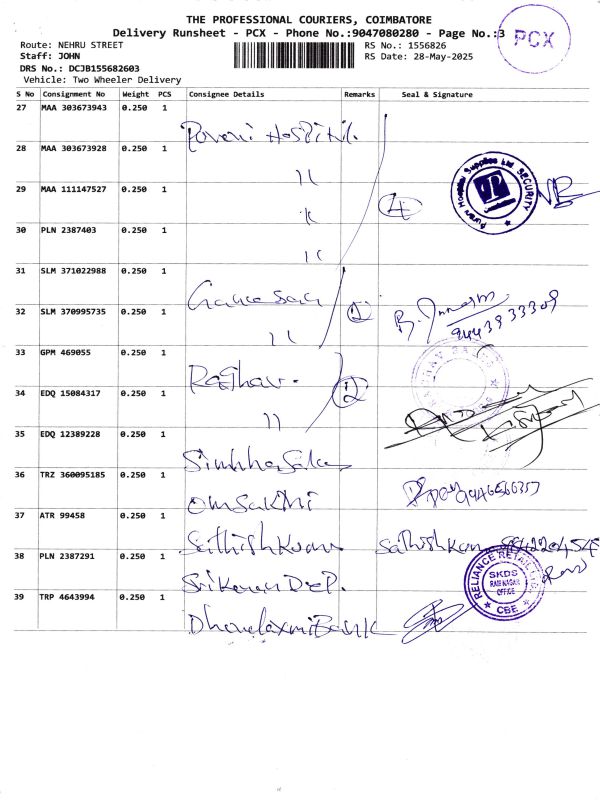 THE PROFESSIONAL COURIERS, COIMBATORE
Delivery Runsheet - PCX - Phone No.:9047080280 - Page No.:3
PCX
Route: NEHRU STREET
RS No.: 1556826
Staff: JOHN
RS Date: 28-May-2025
DRS No.: DCJB155682603
Vehicle: Two Wheeler Delivery
S No Consignment No Weight PCS Consignee Details Remarks Seal & Signature
27 MAA 303673943 0.250 1
28 MAA 303673928 0.250 1 "
29 MAA 111147527 0.250 1 " 4
30 PLN 2387403 0.250 1 "
31 SLM 371022988 0.250 1 Ganesan
32 SLM 370995735 0.250 1 " 2 9443933309
33 GPM 469055 0.250 1 Raghav.
34 EDQ 15084317 0.250 1 " 2
35 EDQ 12389228 0.250 1
36 TRZ 360095185 0.250 1 Omsakthi
37 ATR 99458 0.250 1 Sathishkumar Sathishkum
38 PLN 2387291 0.250 1 Srikaran Dep.
RELIANCE RETAIL
SKDS
OFFICE
CBE
39 TRP 4643994 0.250 1 Dhanalaxmi Bank
SECURITY